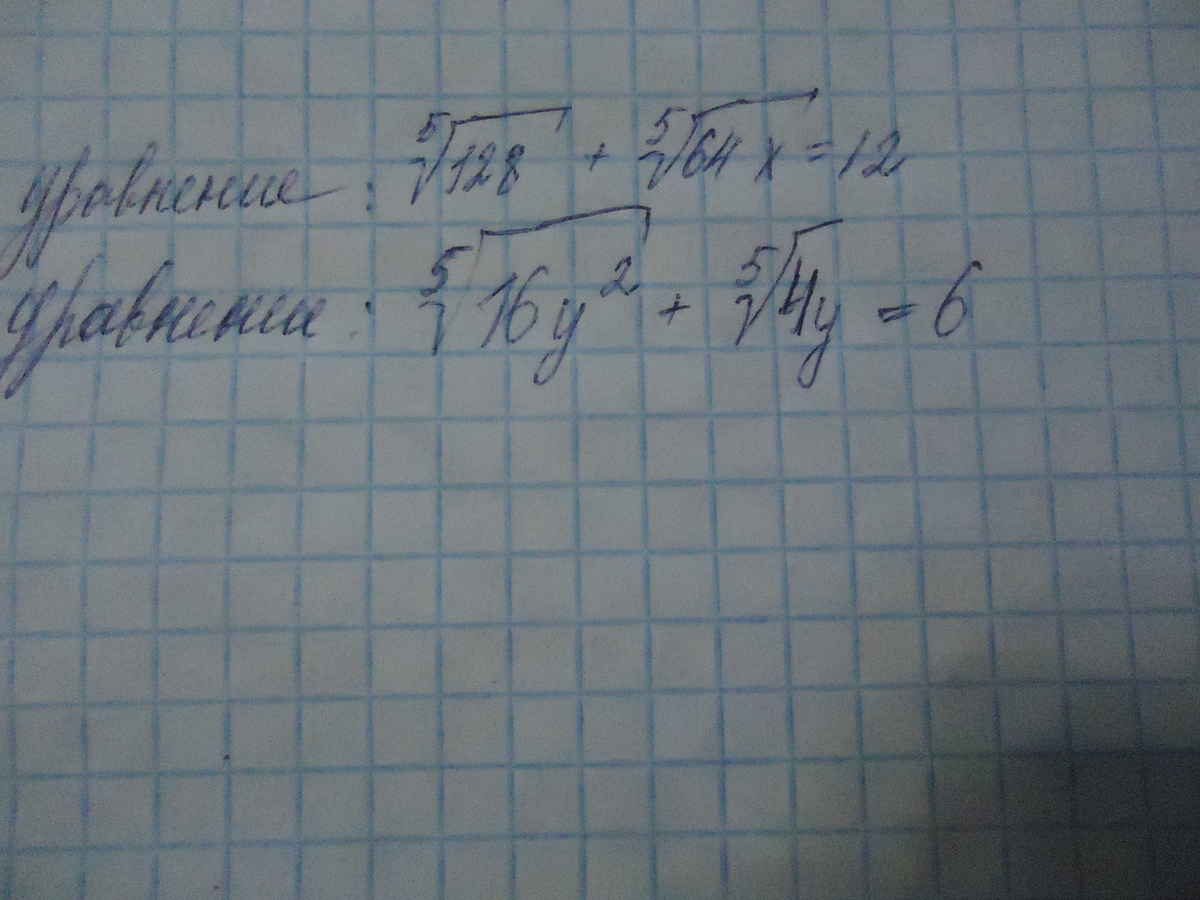 уравнение: ⁵√128 + ⁵√64x = 12
уравнение: ⁵√16y² + ⁵√4y = 6